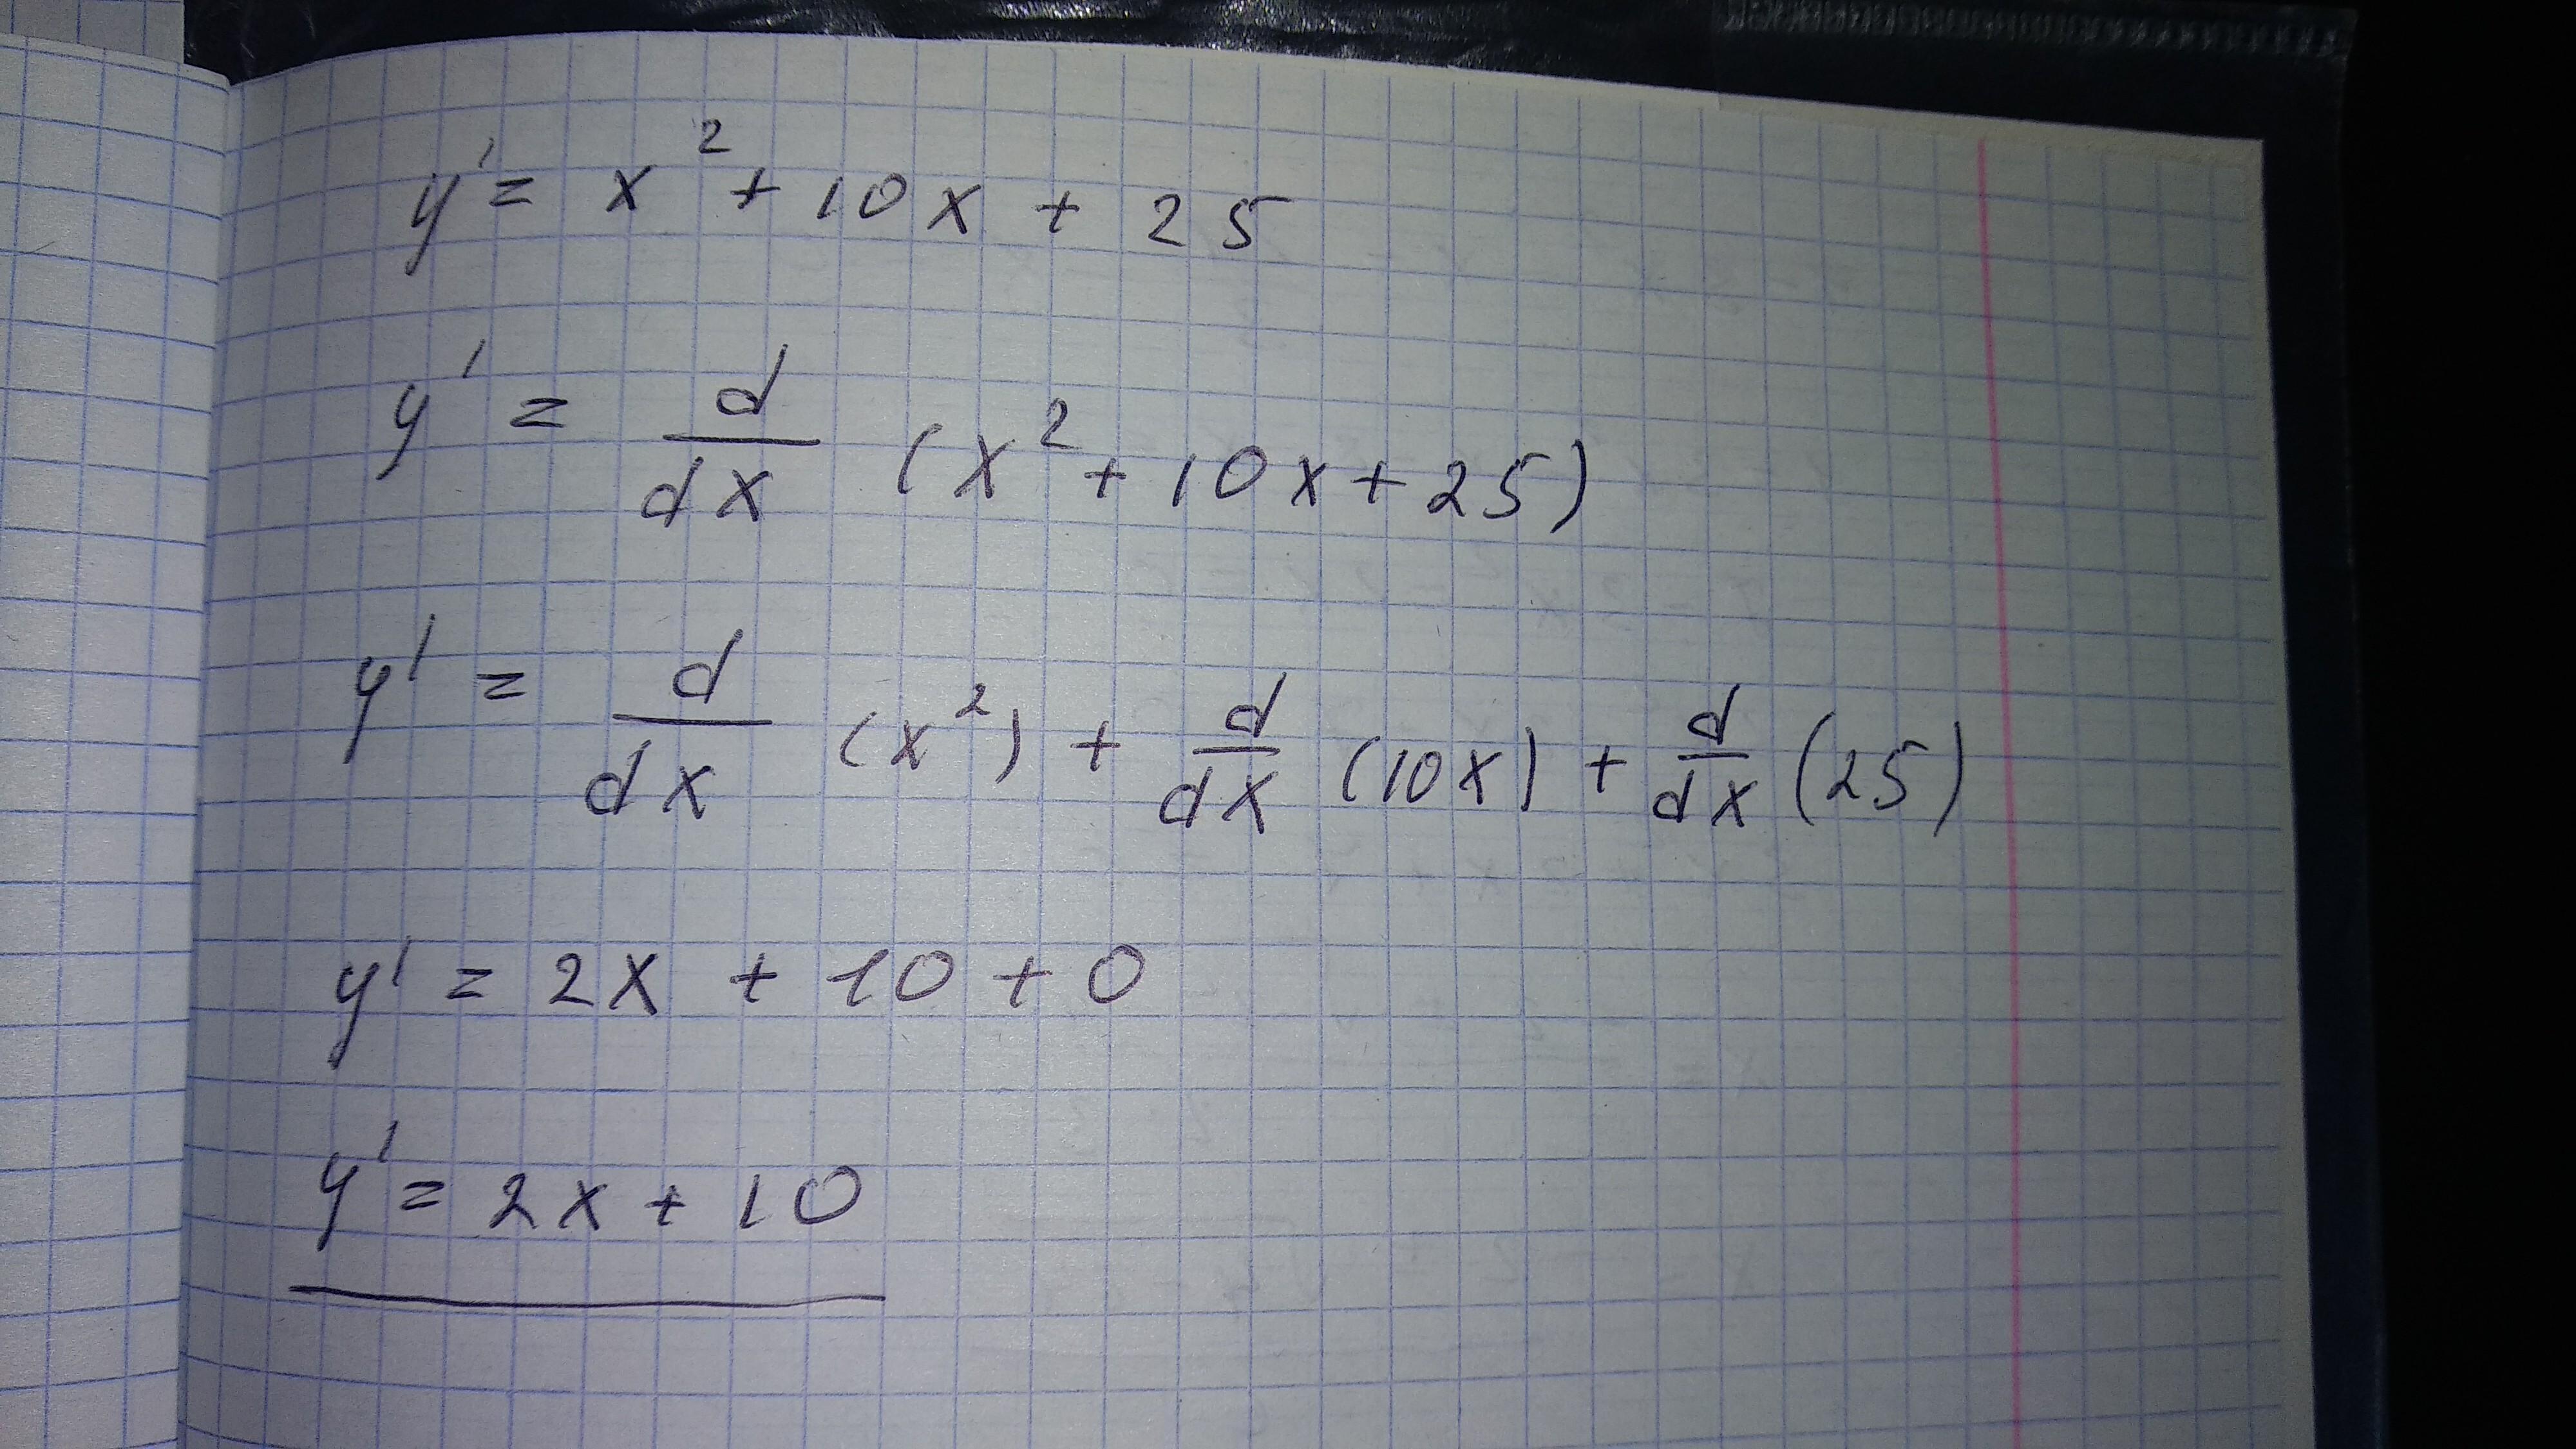 y' = x² + 10x + 25
y' = d/dx (x² + 10x + 25)
y' = d/dx (x²) + d/dx (10x) + d/dx (25)
y' = 2x + 10 + 0
y' = 2x + 10